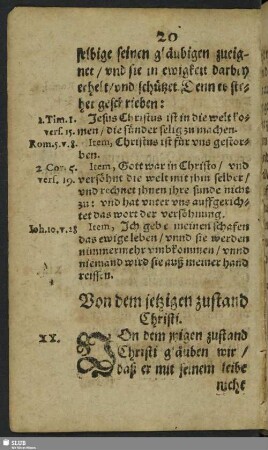 20
selbige seinen gläubigen zueig-
net / vnd sie in ewigkeit darbey
erhelt / vnd schützet. Denn es ste-
het geschrieben:
1. Tim. 1. Jesus Christus ist in die welt kom-
vers. 15. men / die sünder selig zu machen.
Rom. 5. v. 8. Item, Christus ist für vns gestor-
ben.
2 Cor. 5. Item, Gott war in Christo / vnd
vers. 19. versöhnt die welt mit ihm selber /
vnd rechnet ihnen ihre sunde nicht
zu: vnd hat vnter vns auffgericht-
tet das wort der versöhnung.
Ioh. 10. v. 28 Item, Ich gebe meinen schafen
das ewige leben / vnnd sie werden
nimmermehr vmbkommen / vnnd
niemand wird sie auß meiner hand
reissen.
Von dem jetzigen zustand
Christi.
XX. VOn dem jetzigen zustand
Christi gläuben wir /
daß er mit seinem leibe
nicht
SLUB